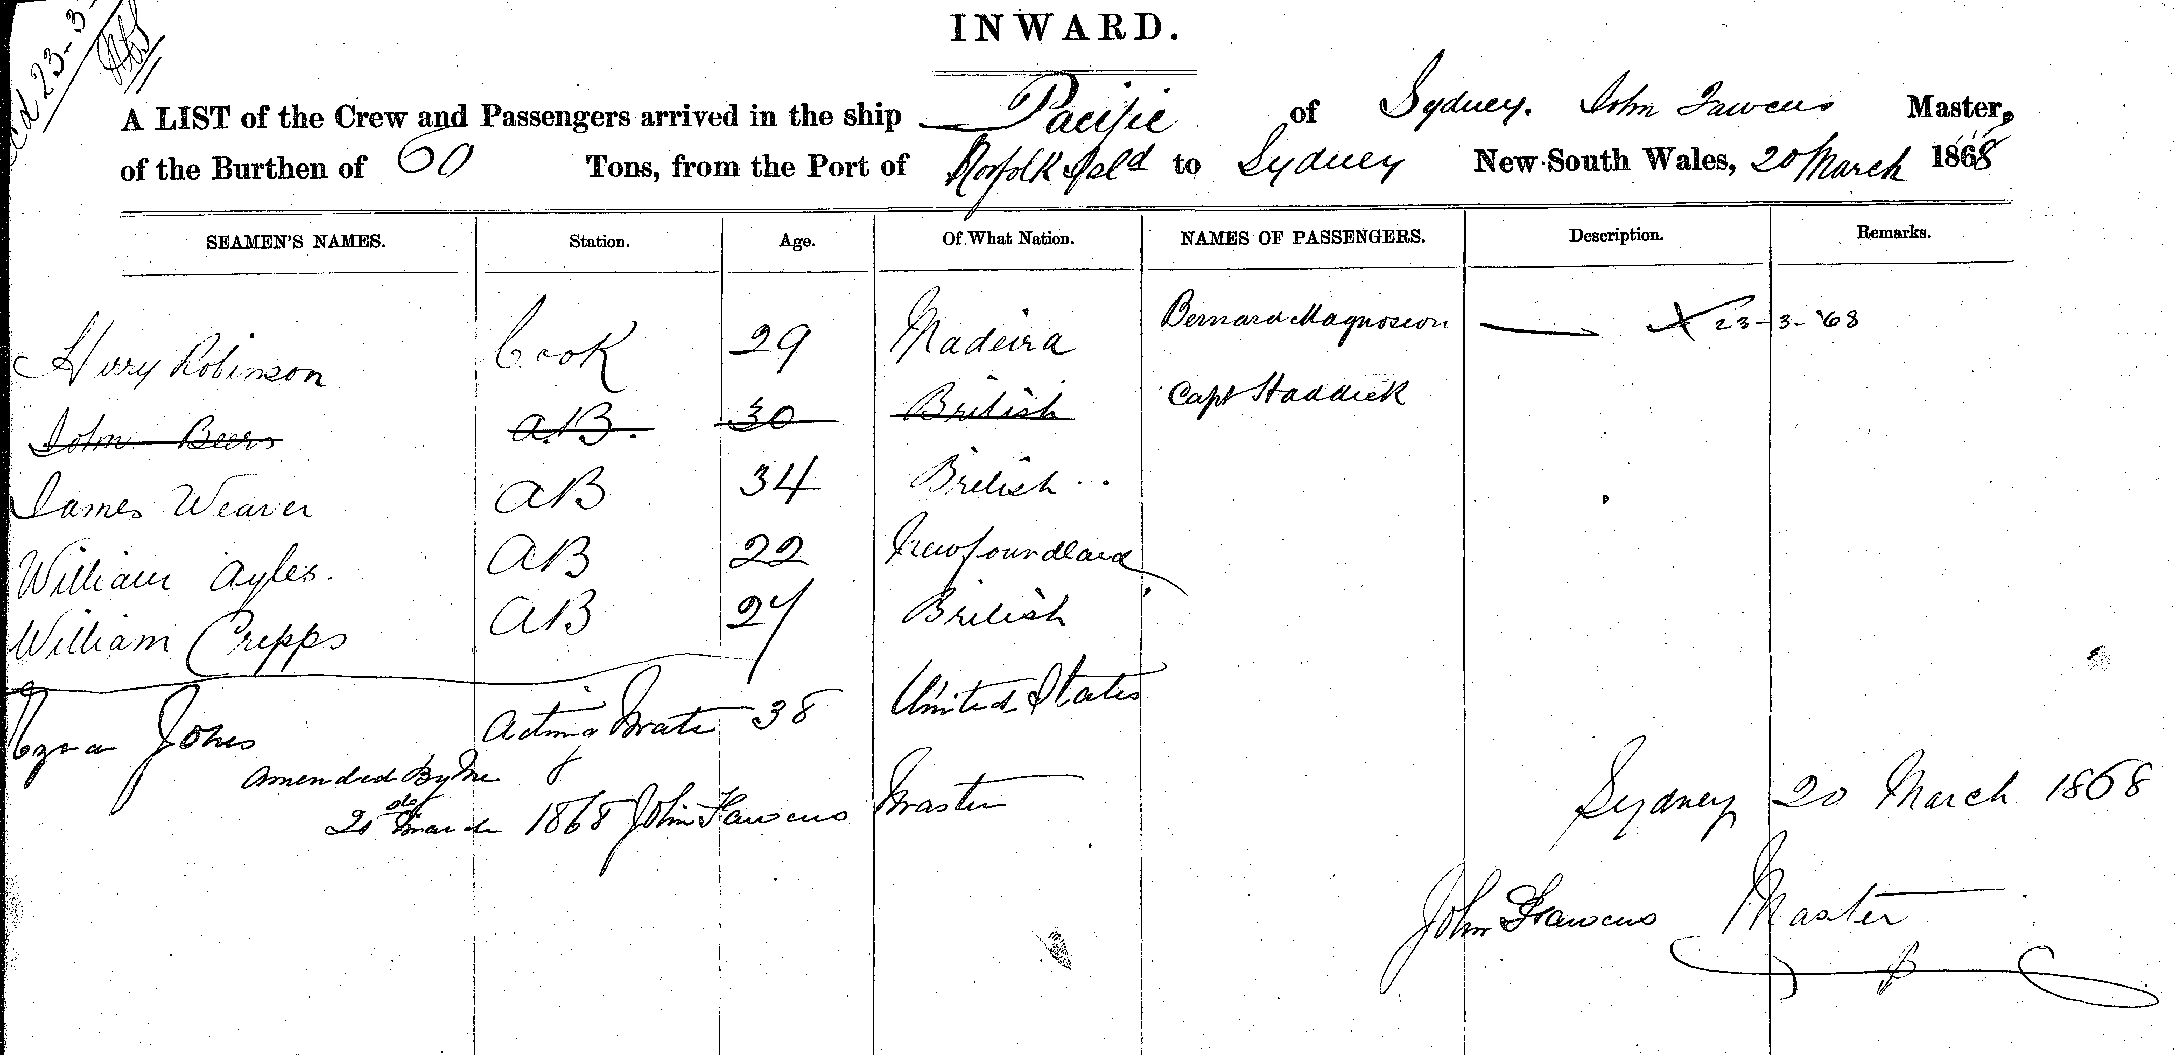 INWARD.
A LIST of the Crew and Passengers arrived in the ship Pacific of Sydney. John Master,
of the Burthen of 60 Tons, from the Port of Norfolk Isld to Sydney New South Wales, 20 March 1868
SEAMEN'S NAMES. Station. Age. Of What Nation. NAMES OF PASSENGERS. Description. Remarks.
Robinson Cook 29 Madeira Bernard — X 23-3-'68
John Beers AB. 30 British Capt Haddick
James Weaver AB 34 British
William Ayles. AB 22 Newfoundland
William Cripps AB 27 British
Jones Acting Mate 38 United States
Amended By Me
March 1868 John Master
Sydney 20 March 1868
John Master